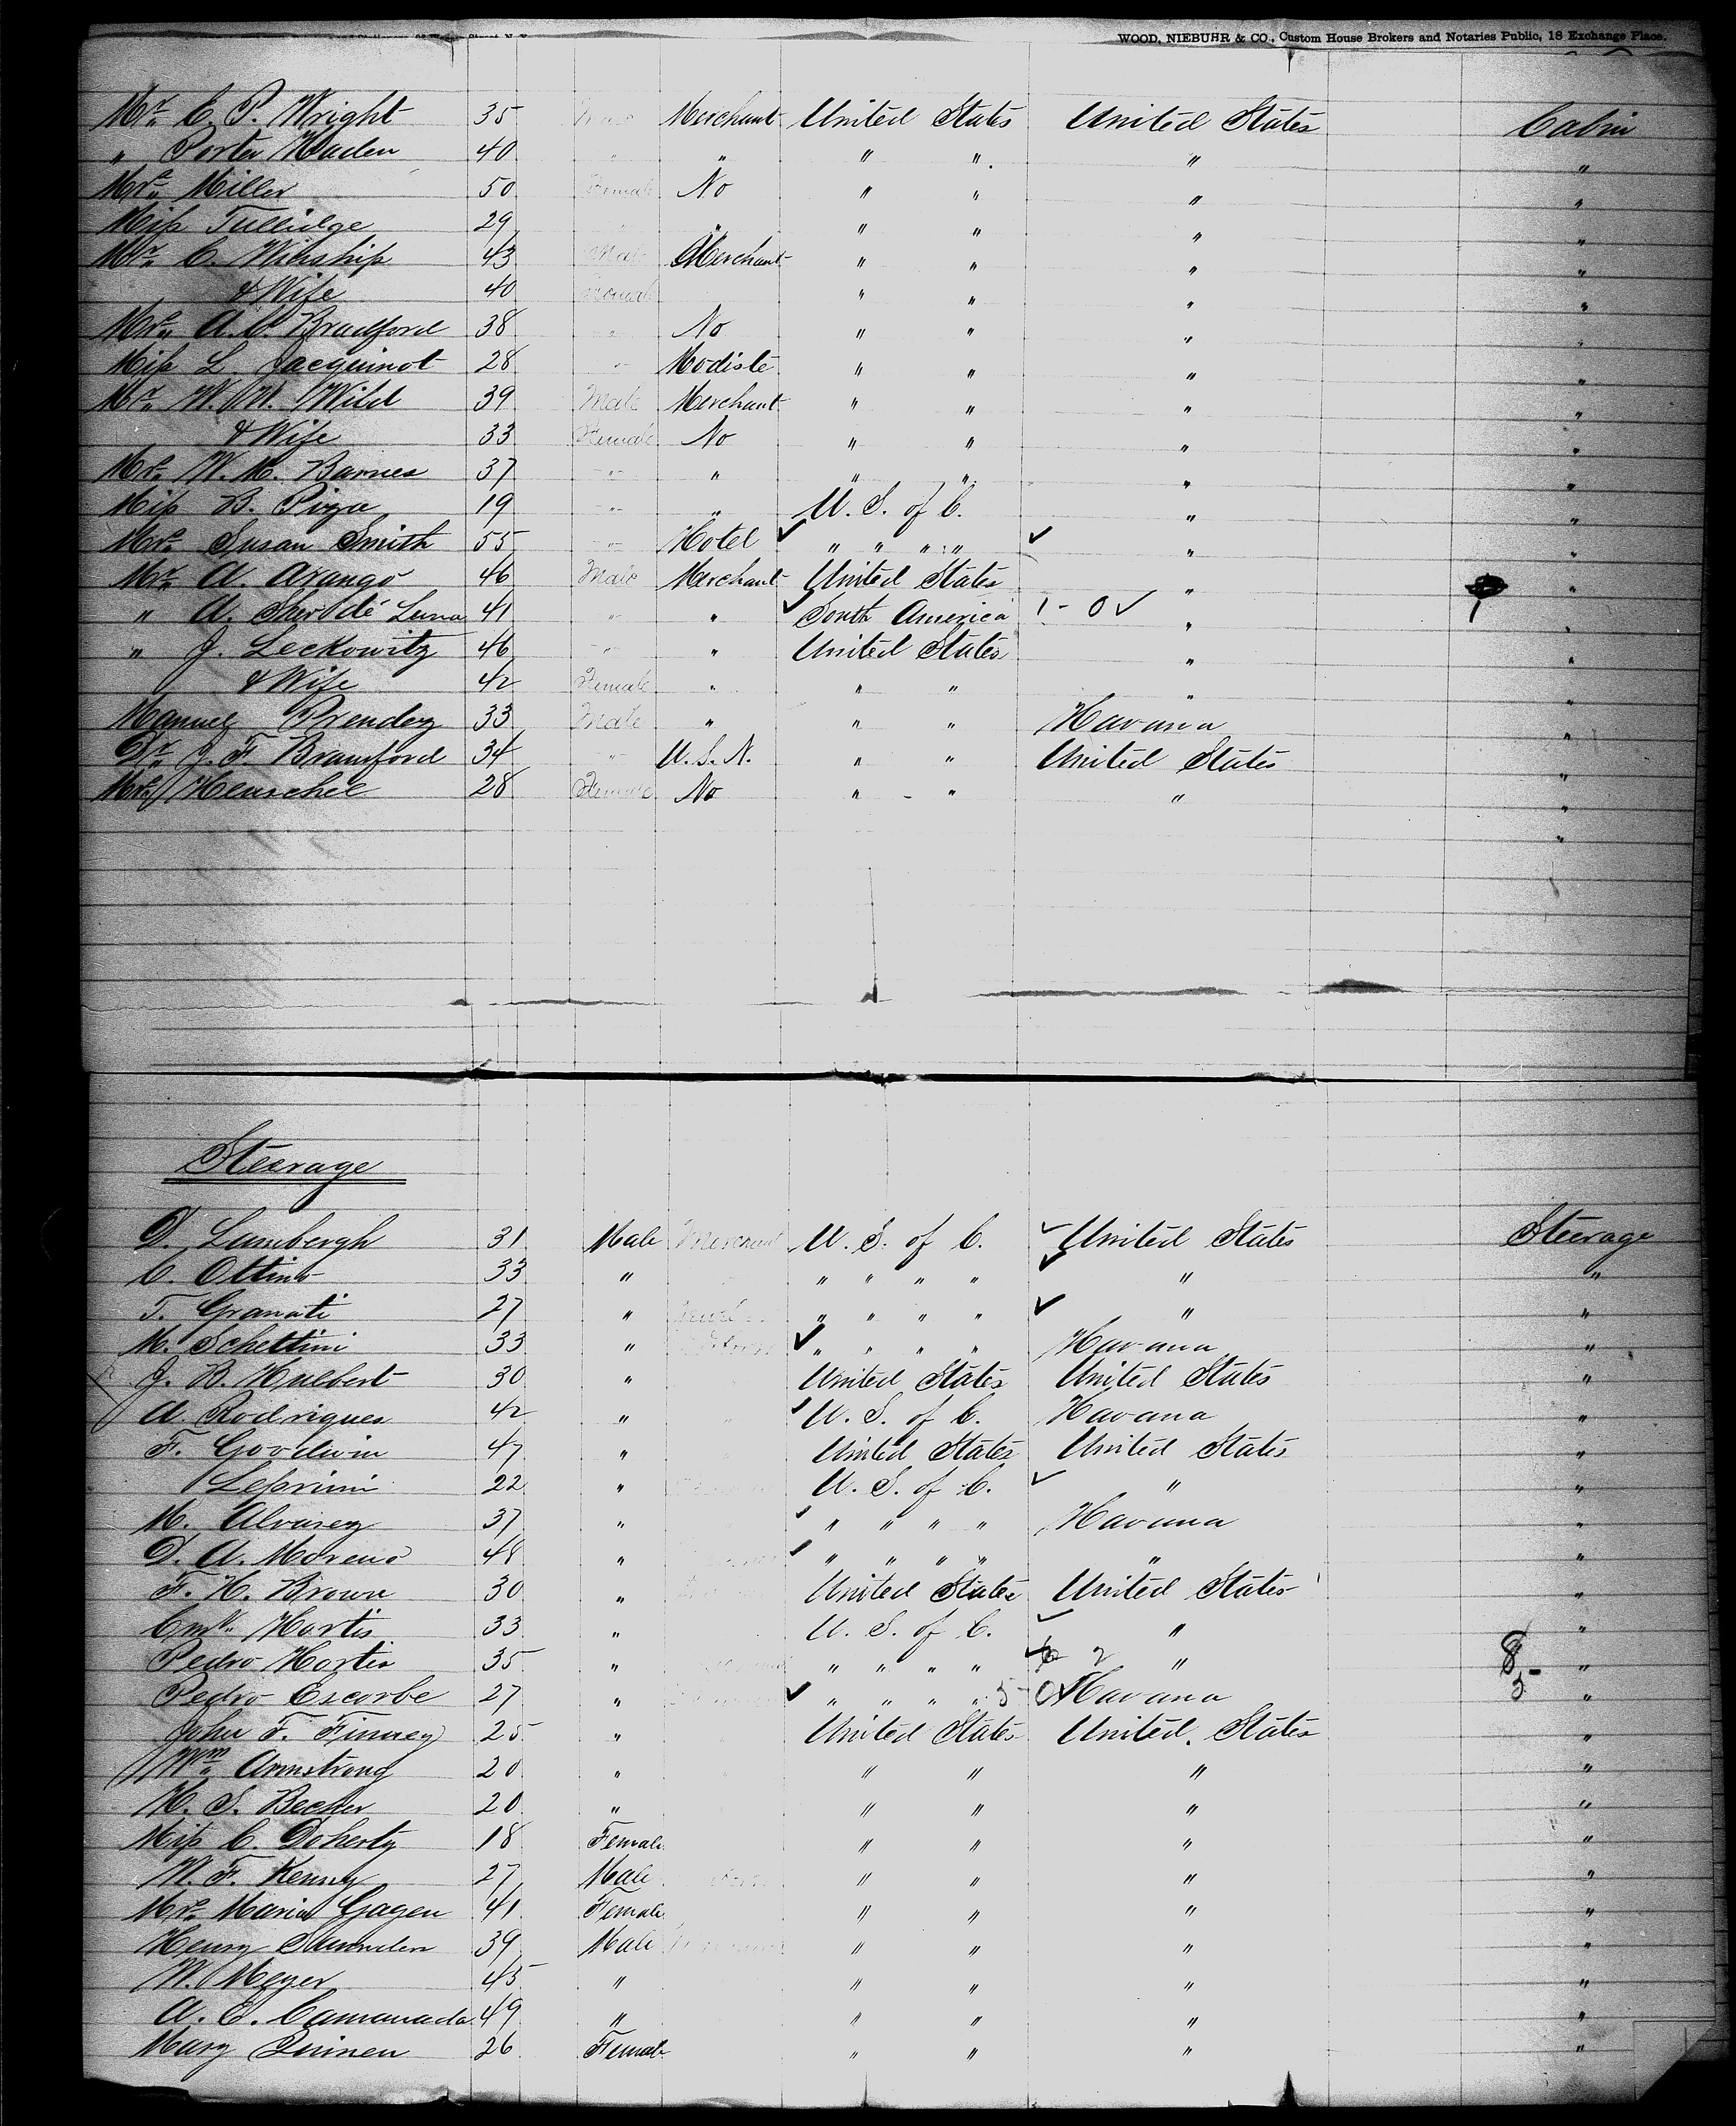 WOOD, NIEBUHR & CO., Custom House Brokers and Notaries Public, 18 Exchange Place.
Mr. C. P. Wright 35 Male Merchant United States United States Cabin
" Porter Haden 40 " " " " " "
Mrs. Miller 50 Female No " " " "
Miss Tullidge 29 " " " " "
Mr. C. Winship 43 Male Merchant " " " "
& Wife 40 Female " " " "
Mrs. A. C. Bradford 38 " No " " " "
Miss L. Jacquinot 28 " Modiste " " " "
Mr. W. W. Wild 39 Male Merchant " " " "
& Wife 33 Female No " " " "
Mrs. W. M. Barnes 37 " " " " " "
Miss B. Piza 19 " " U. S. of C. " "
Mrs. Susan Smith 55 " Hotel ✓ " " " " ✓ " "
Mr. A. Arango 46 Male Merchant United States " "
" A. Luna 41 " " ✓ South America 1 - 0 ✓ " 1 "
" J. Leckowitz 46 " " United States " "
& Wife 42 Female " " " " "
Manuel Prendez 33 Male " " " Havana "
Dr. J. F. Bransford 34 " U.S.N. " " United States "
Mrs. Henschel 28 Female No " " " "
Steerage
D. Lambergh 31 Male Merchant U. S. of C. ✓ United States Steerage
C. Ottino 33 " " " " " ✓ " "
T. Granati 27 " " " " " ✓ " "
M. Schettini 33 " ✓ " " " " Havana "
J. B. Hulbert 30 " United States United States "
A. Rodrigues 42 " ✓ U. S. of C. Havana "
F. Goodwin 47 " United States United States "
Leprini 22 " U. S. of C. ✓ " "
M. Alvarez 37 " ✓ " " " " Havana "
D. A. Moreno 48 " ✓ " " " " " "
F. H. Brown 30 " United States United States "
Hortis 33 " U. S. of C. ✓ " "
Pedro Hortis 35 " " " " " ✓ 2 " 8 "
Pedro Escorbe 27 " ✓ " " " " 5 - 0 ✓ Havana 5 "
John F. Finney 25 " United States United States "
Wm. Armstrong 20 " " " " "
H. S. Becker 20 " " " " "
Miss C. Doherty 18 Female " " " "
W. F. Kenny 27 Male " " " "
Mrs. Maria Gagen 41 Female " " " "
Henry Saunders 39 Male " " " "
W. Meyer 45 " " " " "
A. E. Camanada 49 " " " " "
Mary Quinen 26 Female " " " "